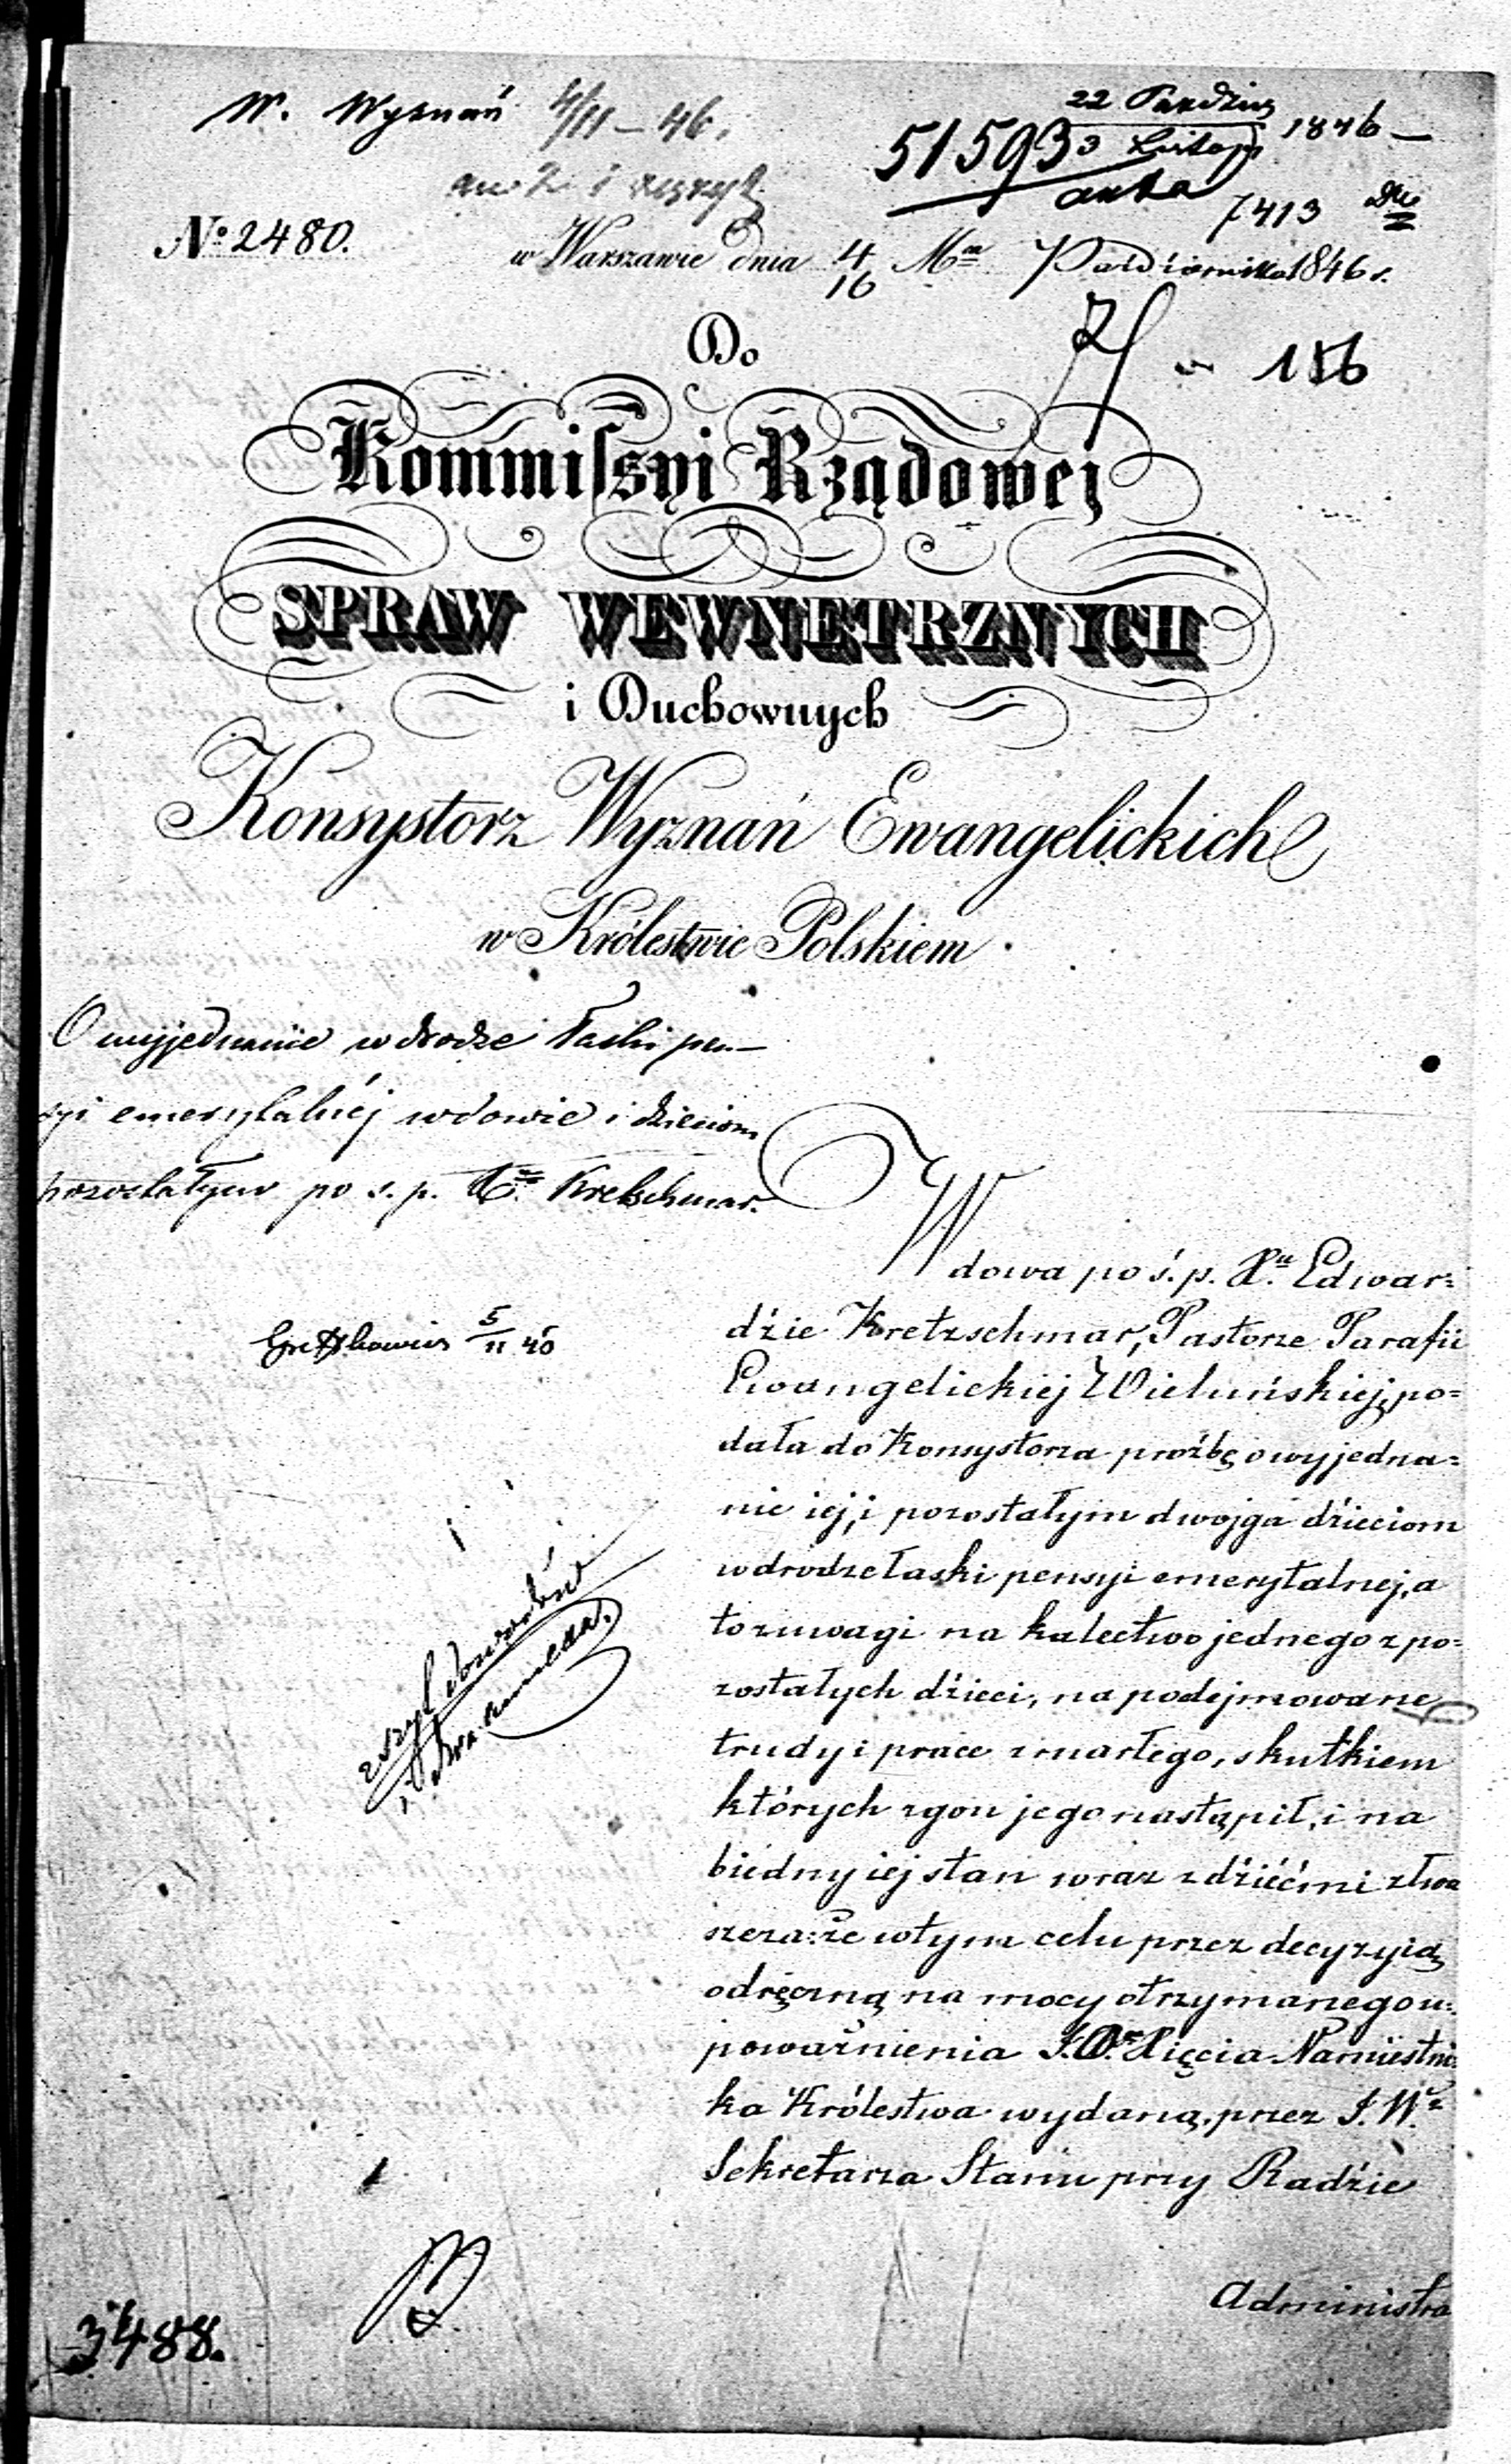 W. Wyznań 4/11 – 46.
22 Paździer
51593 3 Listop 1846 –
akta
7413
No 2480.
w Warszawie dnia 4/16 Mca Października 1846 r.
Do
186
Kommissyi Rządowej
SPRAW WEWNĘTRZNYCH
i Duchownych
Konsystorz Wyznań Ewangelickich
w Królestwie Polskiem
O wyjednanie w drodze łaski pen-
syi emerytalnéj wdowie i dzieciom
pozostałym po s. p. Kretschmar.
Wdowa po ś. p. Xu Edwar=
dzie Kretzschmar, Pastorze Parafii
Ewangelickiej Wieluńskiej, po=
dała do Konsystorza prożbę o wyjedna=
nie iej, i pozostałym dwojga dzieciom
w drodze łaski pensyi emerytalnej, a
to z uwagi na kalectwo jednego z po=
zostałych dzieci, na podejmowane
trudy i prace zmarłego, skutkiem
których zgon jego nastąpił, i na
biedny iej stan wraz z dziećmi zwła
szcza: że w tym celu przez decyzyią
odręczną na mocy otrzymanego u=
poważnienia J. O. Xięcia Namiestni=
ka Królestwa wydaną, przez J. W.
Sekretarza Stanu przy Radzie
5/11 46
Administra
3488.